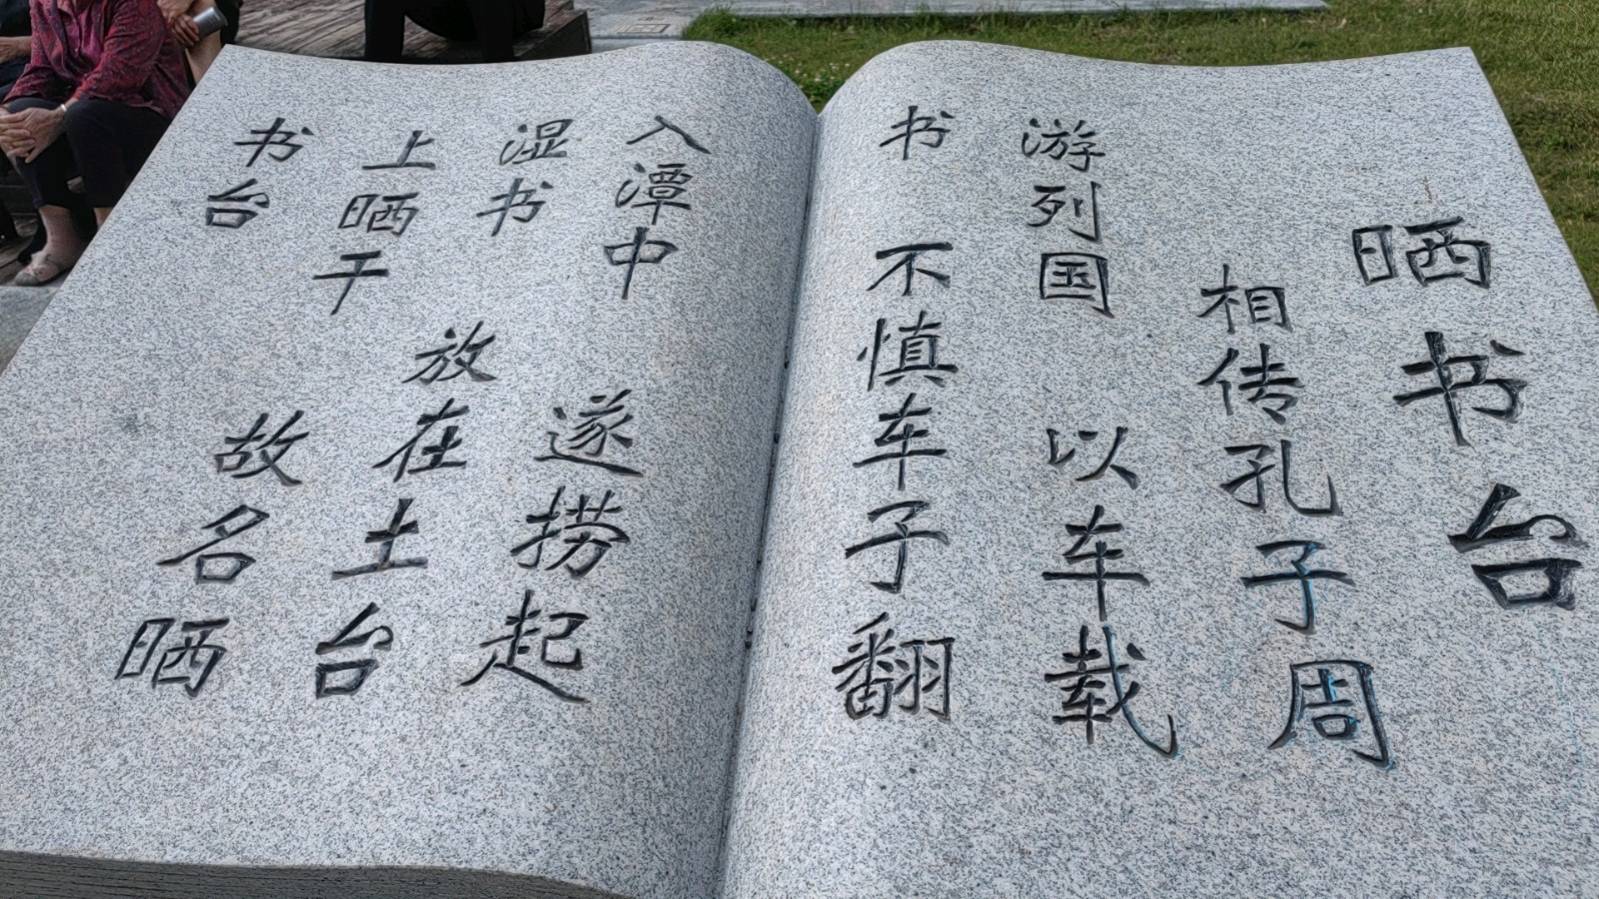 晒书台
相传孔子周
游列国 以车载
书 不慎车子翻
入潭中 遂捞起
湿书 放在土台
上晒干 故名晒
书台